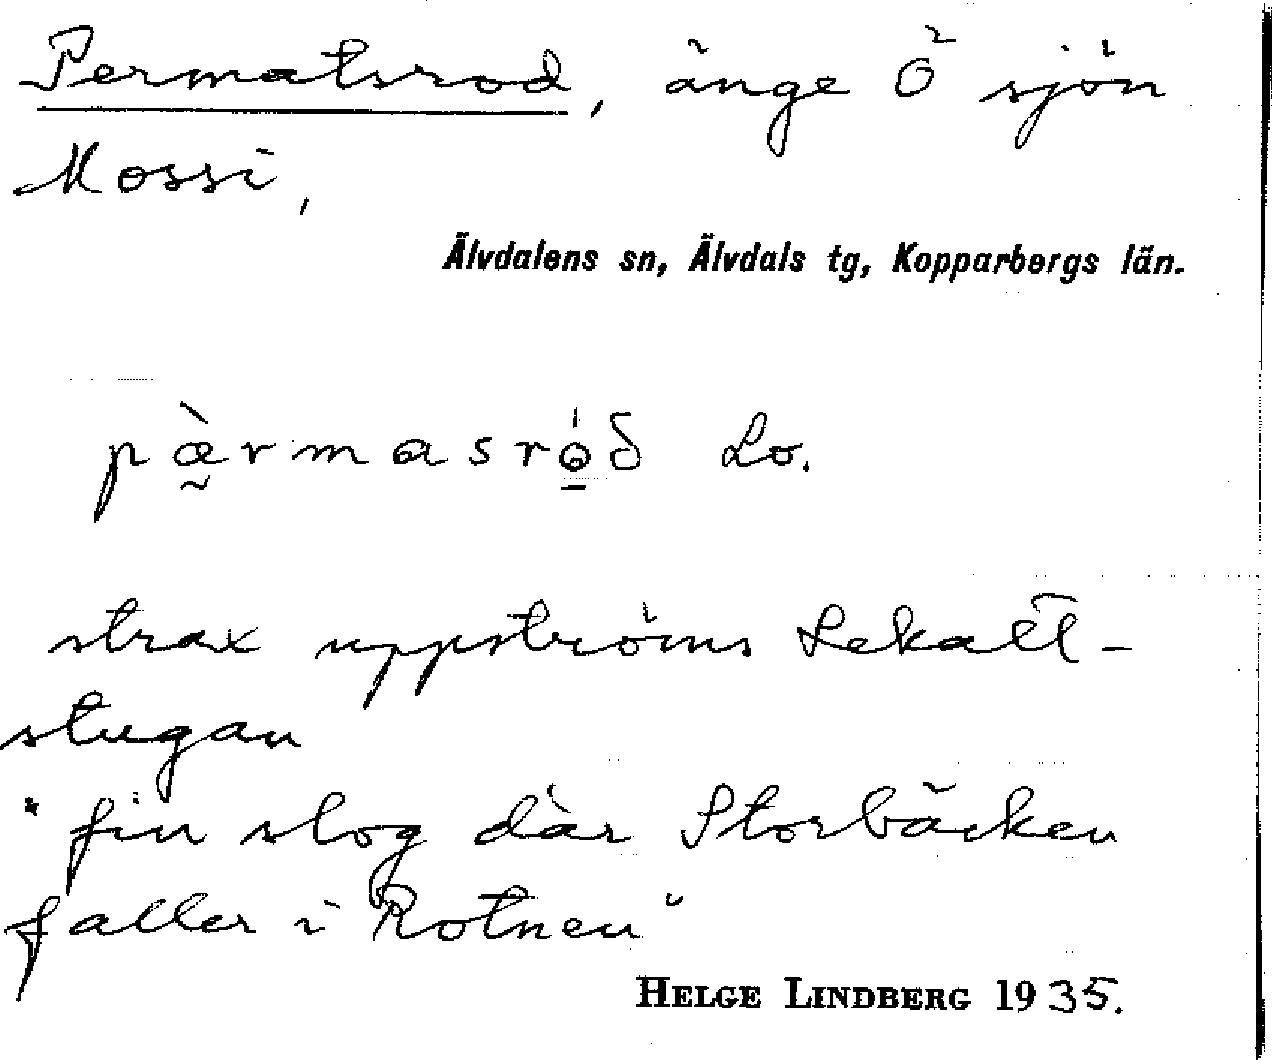 Permatsrod, änge Ö sjön
Mossi,
Älvdalens sn, Älvdals tg, Kopparbergs län.
pæ̀rmasró̱ð Lo.
strax uppströms Lekatt-
stugan
"fin slog där Storbäcken
faller i Rotnen"
HELGE LINDBERG 1935.